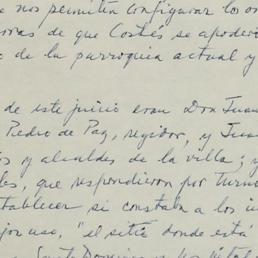 nos permiten configurar los or
oras de que Cortés se apoderó
de la parroquia actual y
de este juicio eran Don Juan
Pedro de Paz, regidor, y Jua
s y alcaldes de la villa; y
les, que respondieron por turno
tablecer si constaba a los i
jor uso, "el sitio donde está
Santo Domingo